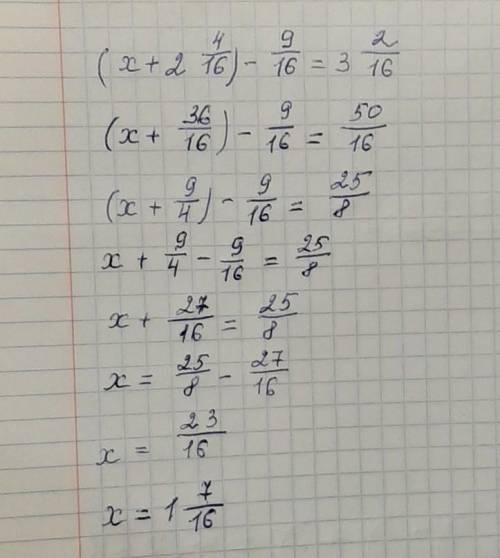 (x + 2 4/16) - 9/16 = 3 2/16
(x + 36/16) - 9/16 = 50/16
(x + 9/4) - 9/16 = 25/8
x + 9/4 - 9/16 = 25/8
x + 27/16 = 25/8
x = 25/8 - 27/16
x = 23/16
x = 1 7/16